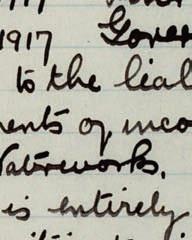 1917 Gover
to the lial
ments of inco
Waterworks.
is entirely